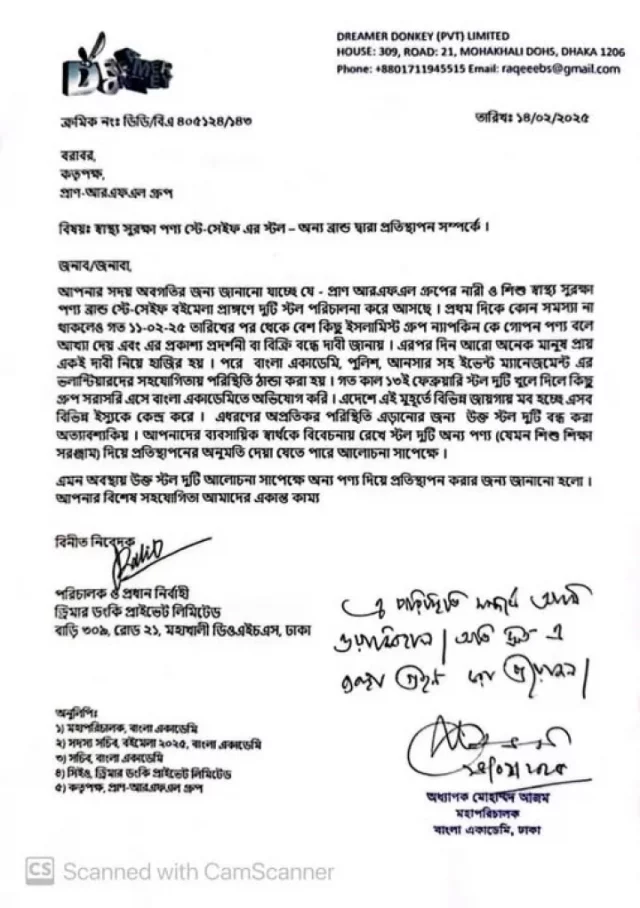 DREAMER DONKEY (PVT) LIMITED
HOUSE: 309, ROAD: 21, MOHAKHALI DOHS, DHAKA 1206
Phone: +8801711945515 Email: raqeeebs@gmail.com
ক্রমিক নংঃ ডিডি/বিএ ৪০৫১২৪/১৪৩
তারিখঃ ১৪/০২/২০২৫
বরাবর,
কতৃপক্ষ,
প্রাণ-আরএফএল গ্রুপ
বিষয়ঃ স্বাস্থ্য সুরক্ষা পণ্য স্টে-সেইফ এর স্টল – অন্য ব্রান্ড দ্বারা প্রতিস্থাপন সম্পর্কে ।
জনাব/জনাবা,
আপনার সদয় অবগতির জন্য জানানো যাচ্ছে যে - প্রাণ আরএফএল গ্রুপের নারী ও শিশু স্বাস্থ্য সুরক্ষা
পণ্য ব্রান্ড স্টে-সেইফ বইমেলা প্রাঙ্গণে দুটি স্টল পরিচালনা করে আসছে । প্রথম দিকে কোন সমস্যা না
থাকলেও গত ১১-০২-২৫ তারিখের পর থেকে বেশ কিছু ইসলামিস্ট গ্রুপ ন্যাপকিন কে গোপন পণ্য বলে
আখ্যা দেয় এবং এর প্রকাশ্য প্রদর্শনী বা বিক্রি বন্ধে দাবী জানায় । এরপর দিন আরো অনেক মানুষ প্রায়
একই দাবী নিয়ে হাজির হয় । পরে বাংলা একাডেমি, পুলিশ, আনসার সহ ইভেন্ট ম্যানেজমেন্ট এর
ভলান্টিয়ারদের সহযোগিতায় পরিস্থিতি ঠান্ডা করা হয় । গত কাল ১৩ই ফেব্রুয়ারি স্টল দুটি খুলে দিলে কিছু
গ্রুপ সরাসরি এসে বাংলা একাডেমিতে অভিযোগ করি । এদেশে এই মুহূর্তে বিভিন্ন জায়গায় মব হচ্ছে এসব
বিভিন্ন ইস্যুকে কেন্দ্র করে । এধরণের অপ্রতিকর পরিস্থিতি এড়ানোর জন্য উক্ত স্টল দুটি বন্ধ করা
অত্যাবশ্যকিয় । আপনাদের ব্যবসায়িক স্বার্থকে বিবেচনায় রেখে স্টল দুটি অন্য পণ্য (যেমন শিশু শিক্ষা
সরঞ্জাম) দিয়ে প্রতিস্থাপনের অনুমতি দেয়া যেতে পারে আলোচনা সাপেক্ষে ।
এমন অবস্থায় উক্ত স্টল দুটি আলোচনা সাপেক্ষে অন্য পণ্য দিয়ে প্রতিস্থাপন করার জন্য জানানো হলো ।
আপনার বিশেষ সহযোগিতা আমাদের একান্ত কাম্য
বিনীত নিবেদক
পরিচালক ও প্রধান নির্বাহী
ড্রিমার ডংকি প্রাইভেট লিমিটেড
বাড়ি ৩০৯, রোড ২১, মহাখালী ডিওএইচএস, ঢাকা
এ পরিস্থিতি সম্পর্কে আমি
ওয়াকিবহাল । অতি দ্রুত এ
ব্যবস্থা গ্রহণ করা প্রয়োজন ।
অনুলিপিঃ
১) মহাপরিচালক, বাংলা একাডেমি
২) সদস্য সচিব, বইমেলা ২০২৫, বাংলা একাডেমি
৩) সচিব, বাংলা একাডেমি
৪) সিইও, ড্রিমার ডংকি প্রাইভেট লিমিটেড
৫) কতৃপক্ষ, প্রাণ-আরএফএল গ্রুপ
অধ্যাপক মোহাম্মদ আজম
মহাপরিচালক
বাংলা একাডেমি, ঢাকা
CS Scanned with CamScanner